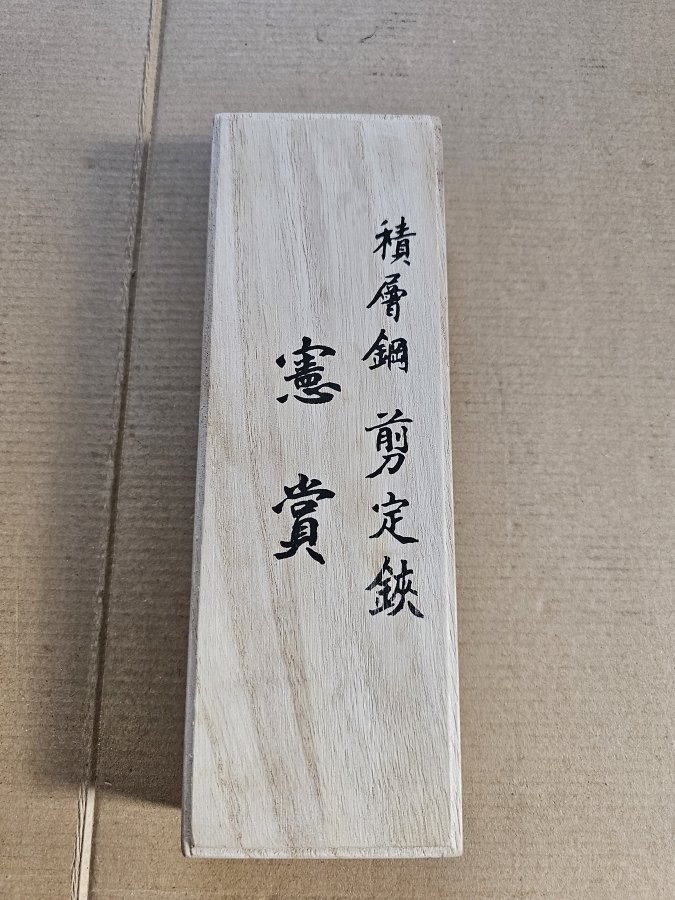 積層鋼 剪定鋏
憲賞